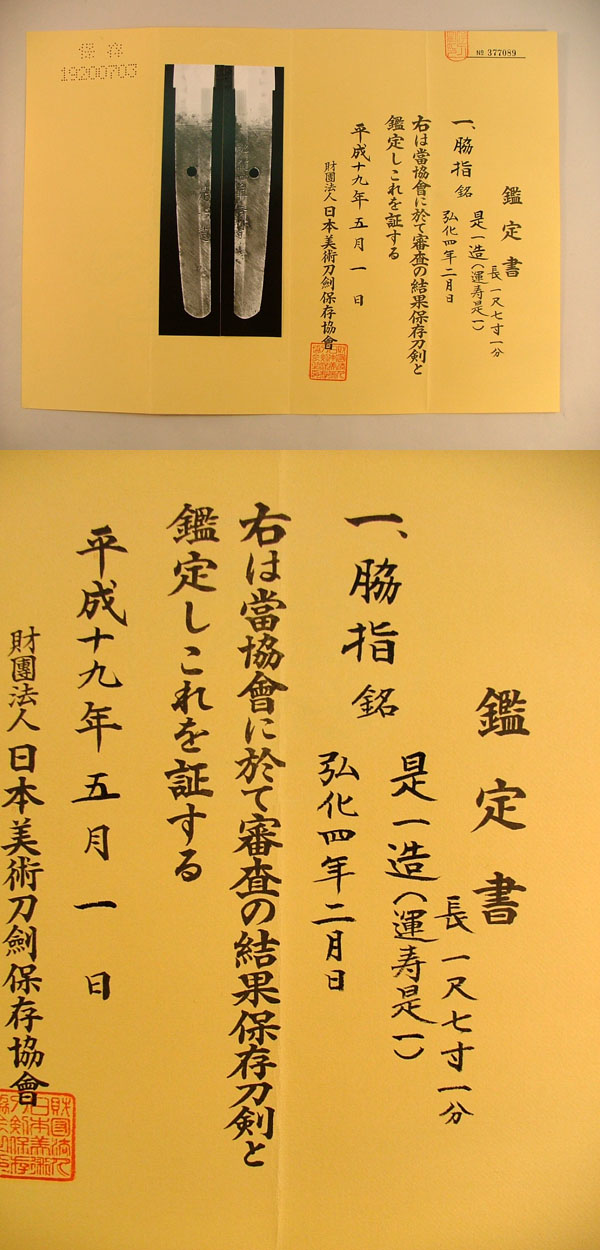 保存
19200703
№ 377089
鑑定書
一、脇指 銘 是一造(運寿是一)
長一尺七寸一分
弘化四年二月日
右は當協會に於て審査の結果保存刀剣と
鑑定しこれを証する
平成十九年五月一日
財團法人日本美術刀劍保存協會
鑑定書
長一尺七寸一分
一、脇指 銘 是一造(運寿是一)
弘化四年二月日
右は當協會に於て審査の結果保存刀剣と
鑑定しこれを証する
平成十九年五月一日
財團法人日本美術刀劍保存協會